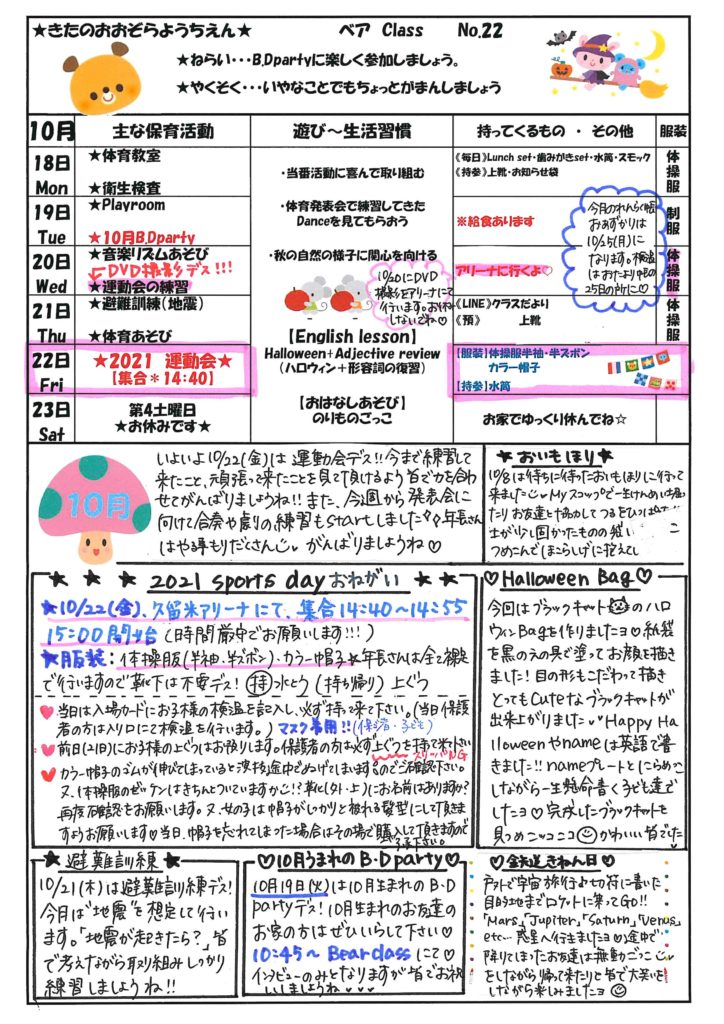 ★きたのおおぞらようちえん★ ベア Class No.22
★ねらい・・・B.Dpartyに楽しく参加しましょう。
★やくそく・・・いやなことでもちょっとがまんしましょう
10月 主な保育活動 遊び～生活習慣 持ってくるもの ・ その他 服装
18日 Mon
★体育教室
★衛生検査
・当番活動に喜んで取り組む
《毎日》Lunch set・歯みがきset・水筒・スモック
《持参》上靴・お知らせ袋
体操服
19日 Tue
★Playroom
★10月B.Dparty
・体育発表会で練習してきた
Danceを見てもらおう
※給食あります
制服
今月のれんらく帳
おあずかりは
10/25(月)に
なります。検温
はおたより帳の
25日の所に♡
20日 Wed
★音楽リズムあそび
DVD撮影デス!!!
★運動会の練習
・秋の自然の様子に関心を向ける
10/20にDVD
撮影をアリーナにて
行います。お休み
しないでね♡
アリーナに行くよ♡
体操服
21日 Thu
★避難訓練(地震)
★体育あそび
【English lesson】
Halloween+Adjective review
(ハロウィン+形容詞の復習)
《LINE》クラスだより
《預》 上靴
体操服
22日 Fri
★2021 運動会★
【集合＊14:40】
【服装】体操服半袖・半ズボン・
カラー帽子
【持参】水筒
23日 Sat
第4土曜日
★お休みです★
【おはなしあそび】
のりものごっこ
お家でゆっくり休んでね☆
10月
いよいよ10/22(金)は運動会デス!!今まで練習して
来たこと、頑張って来たことを見て頂けるよう皆で力を合わ
せてがんばりましょうね!!また、今週から発表会に
向けて合奏や劇りの練習もstartしました♪年長さん
はやる事もりだくさん がんばりましょうね♡
★おいもほり★
10/8は待ちに待ったおいもほりに行って
来ました Myスコップで一生けんめい掘っ
たりお友達と協力してつるをひっぱ
士が少し固かったものの
つめこんでほこらしげに抱えてし
★ ★ ★ 2021 sports day おねがい ★ ★ ★
★10/22(金)、久留米アリーナにて、集合14:40～14:55
15:00開始 (時間厳守でお願います!!!)
★服装：体操服(半袖・半ズボン)・カラー帽子★年長さんは全て裸足
で行いますので靴下は不要デス! 持 水とう (持ち帰り) 上ぐつ
♥当日は入場カードにお子様の検温を記入し、必ず持って来て下さい。(当日保護
者の方は入り口にて検温を行います。) マスク着用!!(保護者・子ども)
♥前日(21日)にお子様の上ぐつはお預りします。保護者の方は必ず上ぐつを持って来て下さい
スリッパNG
♥カラー帽子のゴムが伸びてしまっていると演技途中でぬげてしまいますのでご確認下さい。
又、体操服のゼッケンはきちんとついていますか!?靴(外・上)にお名前はありますか?
再度確認をお願いします。又、女の子は帽子がしっかりと被れる髪型にして頂きま
すようお願いします 当日、帽子を忘れてしまった場合はその場で購入して頂きますので
ご了承下さい。
♡Halloween Bag♡
今回はブラックキャットのハロ
ウィンBagを作りましたヨ♡紙袋
を黒のえの具で塗ってお顔を描き
ました!目の形もこだわって描き
とってもCuteなブラックキャットが
出来上がりました Happy Ha
lloweenやnameは英語で書
きました!!nameプレートとにらめっこ
しながら一生懸命書く子ども達で
したヨ♡完成したブラックキャットを
見つめニッコニコ かわいい皆でした
★避難訓練★
10/21(木)は避難訓練デス!
今月は"地震"を想定して行い
ます。「地震が起きたら?」皆
で考えながら取り組みしっかり
練習しましょうね!!
♡10月うまれのB・D party♡
10月19日(火)は10月生まれのB・D
partyデス!10月生まれのお友達の
お家の方はぜひいらして下さい♡
10:45～ Bear classにて♡
インタビューのみとなりますが皆でお祝
いしましょうね
☆鉄道きねん日☆
アストで宇宙旅行♪切符に書いた
目的地までロケットに乗ってGo!!
「Mars」「Jupiter」「Saturn」「Venus」
etc… 惑星へ行きましたヨ♡途中で
降りてしまったお友達は無動ごっこ
をしながら帰って来たりと皆で大笑いを
しながら楽しみましたヨ